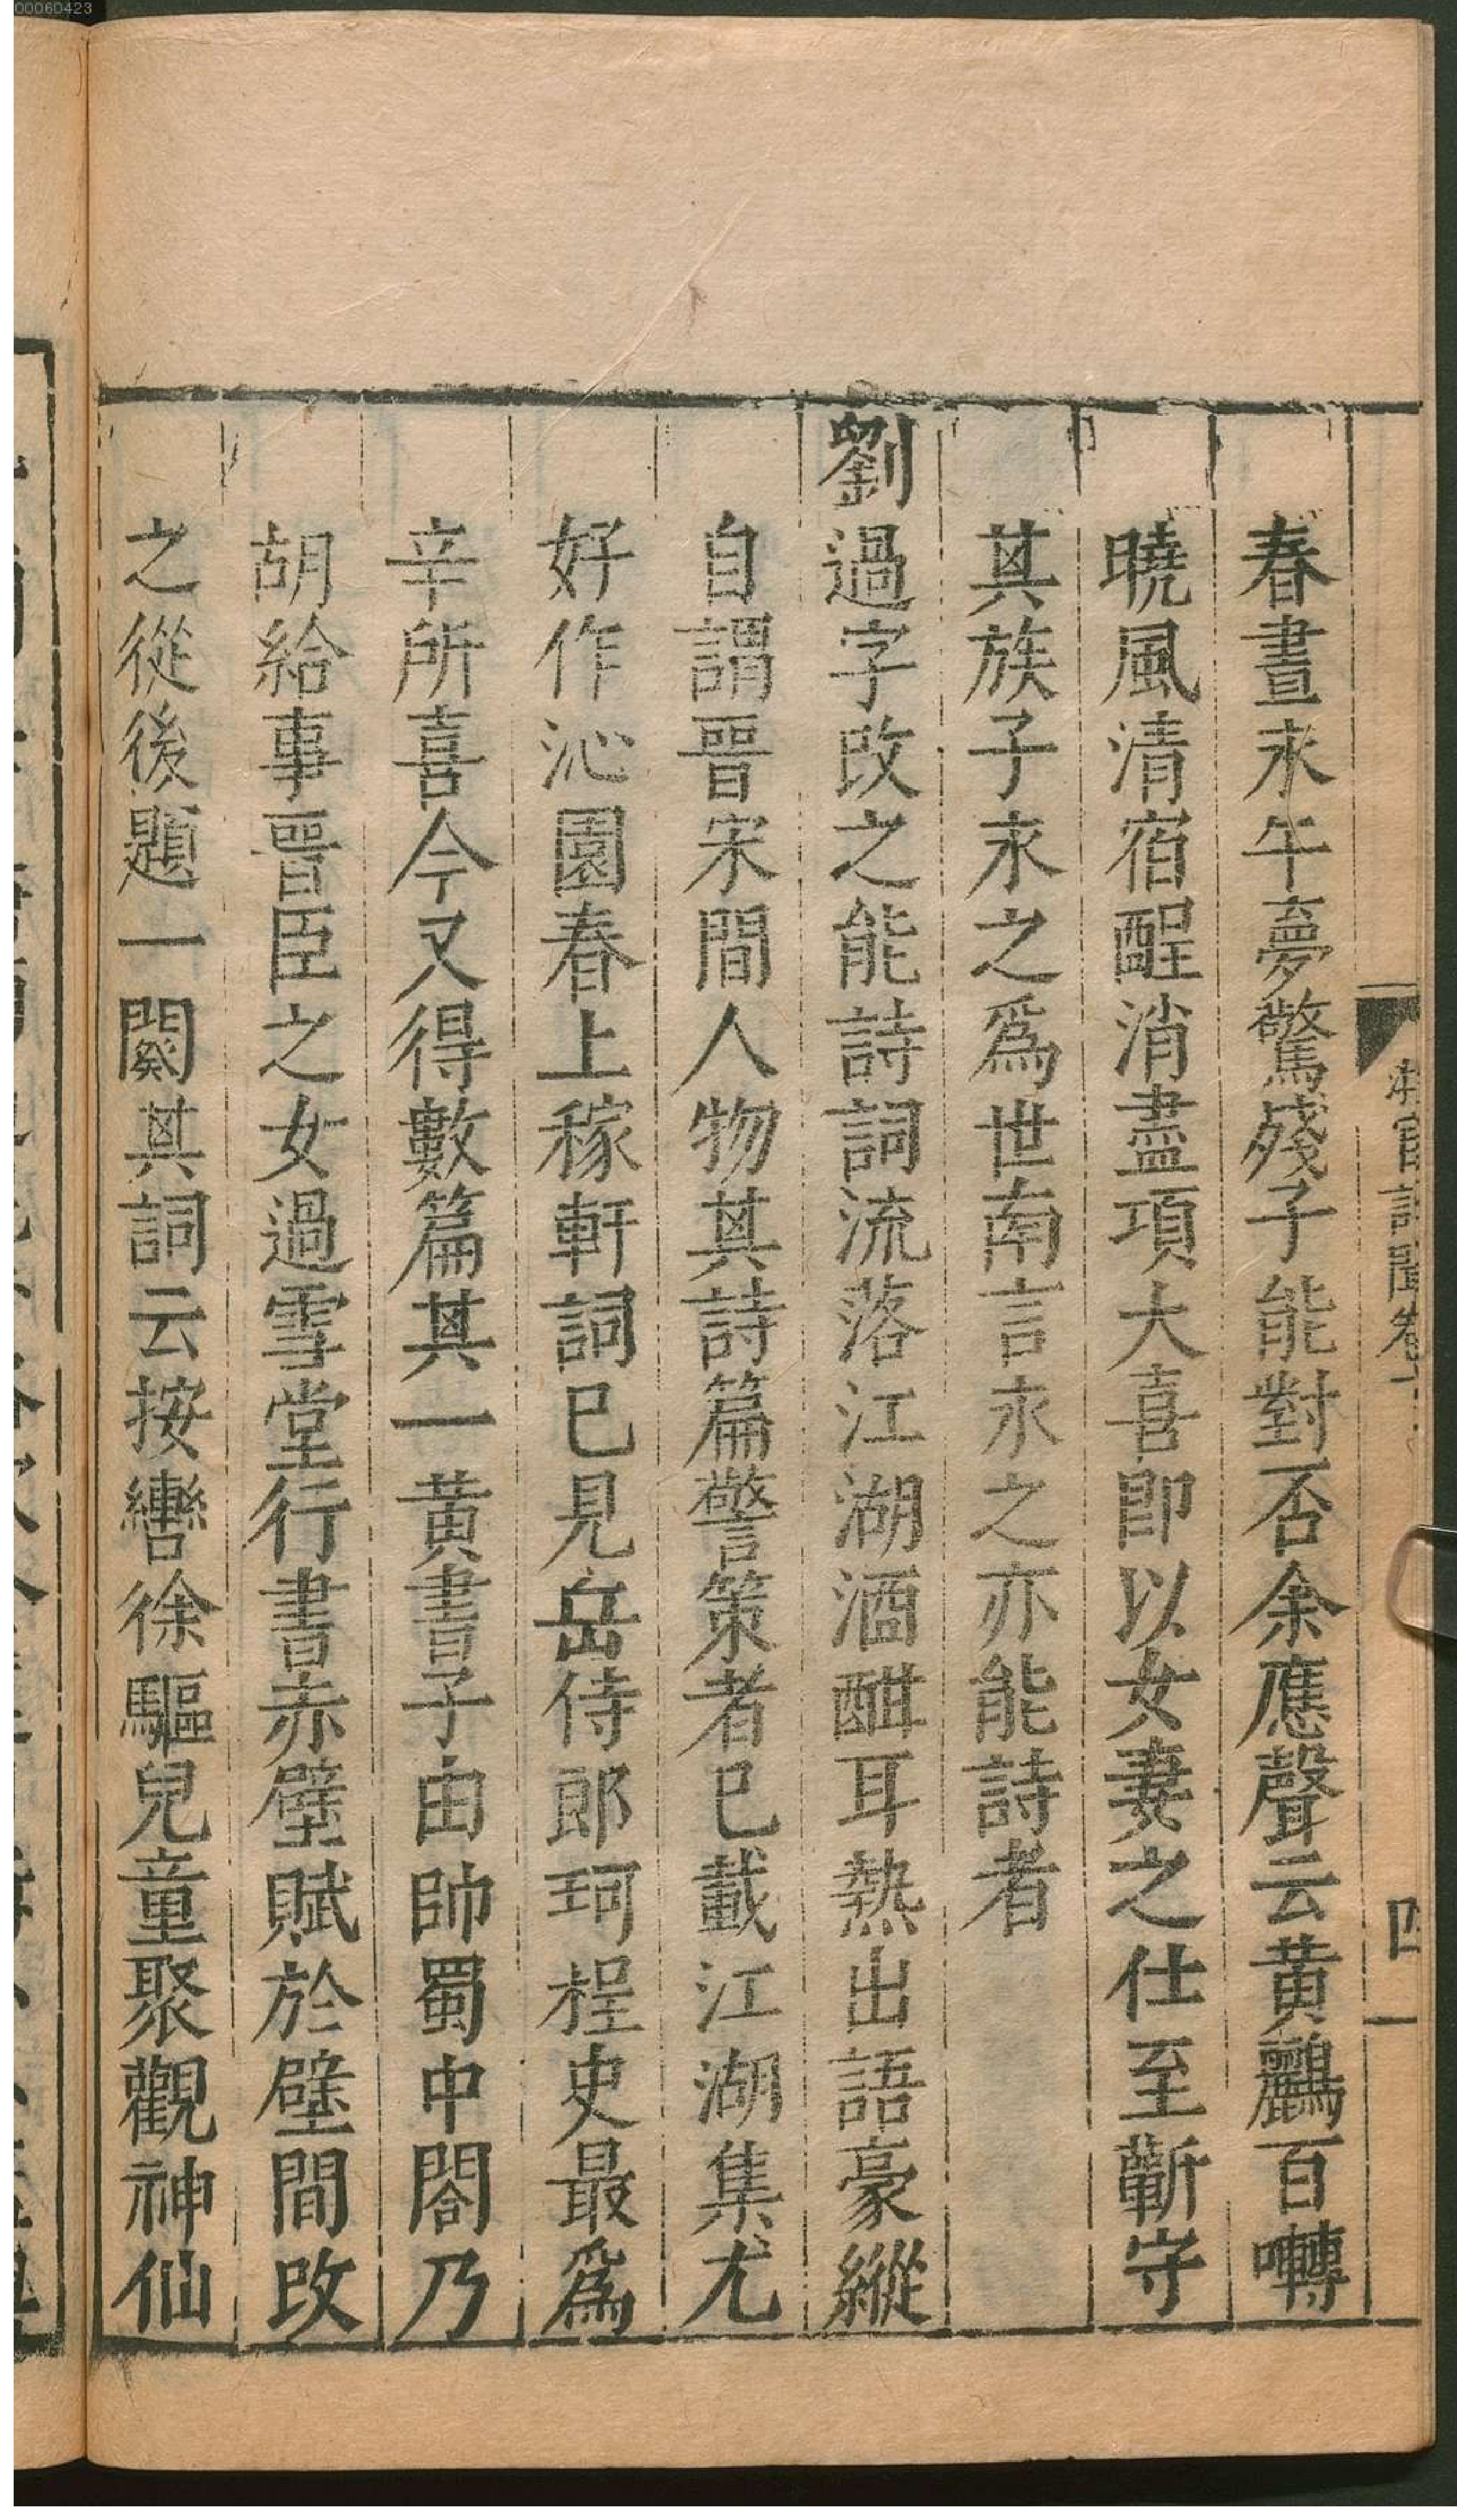 00060423
四
春晝永午夢驚殘子能對否余應聲云黃鸝百囀
曉風清宿酲消盡項大喜即以女妻之仕至蘄守
其族子永之爲世南言永之亦能詩者
劉過字改之能詩詞流落江湖酒酣耳熱出語豪縱
自謂晉宋間人物其詩篇警策者已載江湖集尤
好作沁園春上稼軒詞已見岳侍郎珂桯史最爲
辛所喜今又得數篇其一黃書子由帥蜀中閤乃
胡給事晉臣之女過雪堂行書赤壁賦於壁間改
之從後題一闋其詞云按轡徐驅兒童聚觀神仙